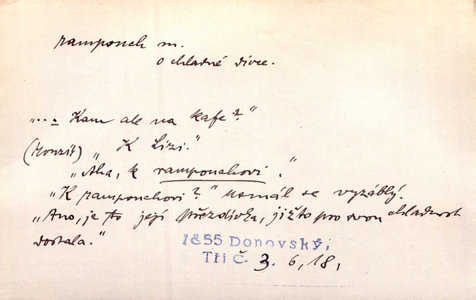 ramponch m.
o chladné dívce.
"... Kam ale na kafe?"
(Monzit) "K Lízi."
"Aha, k ramponchovi."
"K ramponchovi?" usmál se vyzáblý.
"Ano, je to její přezdívka, jížto pro svou chladnost
dostala."
1855 Donovský,
Tři č. 3. 6, 18,